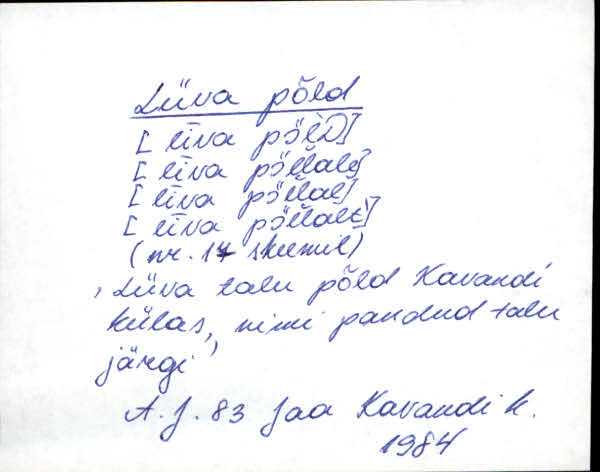 Liiva põld
[līva pȭlD]
[līva pȭllalɢ]
[līva pȭllal]
[līva pȭllalt]
(nr. 17 skeemil)
, Liiva talu põld Kavandi
külas, nimi pandud talu
järgi ʼ
A. J. 83 Jaa Kavandi k.
1984